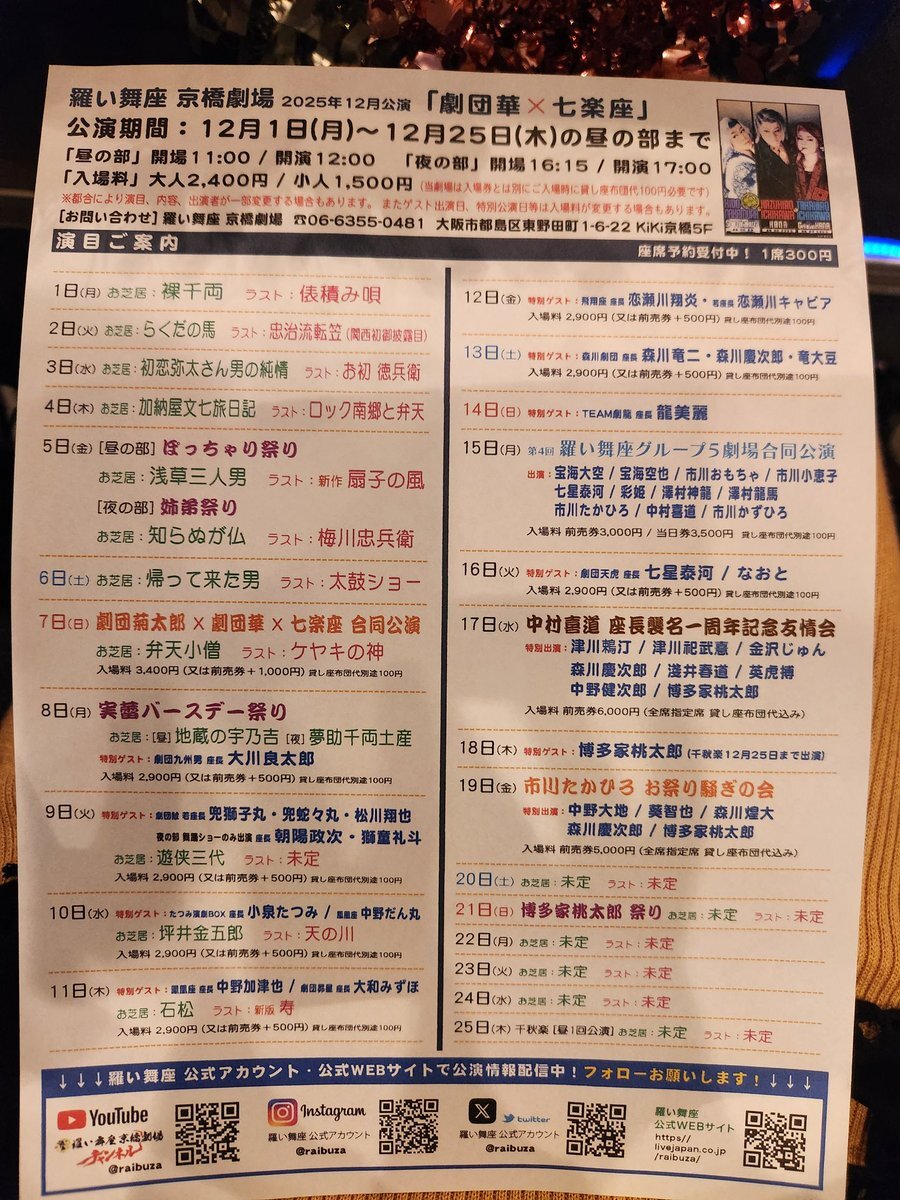 羅い舞座 京橋劇場 2025年12月公演 「劇団華×七楽座」
公演期間：12月1日(月)～12月25日(木)の昼の部まで
「昼の部」開場11:00 / 開演12:00 「夜の部」開場16:15 / 開演17:00
「入場料」大人2,400円 / 小人1,500円 (当劇場は入場券とは別にご入場時に貸し座布団代100円必要です)
※都合により演目、内容、出演者が一部変更する場合もあります。 またゲスト出演日、特別公演日等は入場料が変更する場合もあります。
[お問い合わせ] 羅い舞座 京橋劇場 ☎06-6355-0481 大阪市都島区東野田町1-6-22 KiKi京橋5F
KAZUHIRO ICHIKAWA HANA
TAKAHIRO ICHIKAWA
演目ご案内
座席予約受付中！ 1席300円
1日(月) お芝居：裸千両 ラスト：俵積み唄
2日(火) お芝居：らくだの馬 ラスト：忠治流転笠 (関西初御披露目)
3日(水) お芝居：初恋弥太さん男の純情 ラスト：お初 徳兵衛
4日(木) お芝居：加納屋文七旅日記 ラスト：ロック南郷と弁天
5日(金) [昼の部] ぽっちゃり祭り
お芝居：浅草三人男 ラスト：新作 扇子の風
[夜の部] 姉弟祭り
お芝居：知らぬが仏 ラスト：梅川忠兵衛
6日(土) お芝居：帰って来た男 ラスト：太鼓ショー
7日(日) 劇団菊太郎 × 劇団華 × 七楽座 合同公演
お芝居：弁天小僧 ラスト：ケヤキの神
入場料 3,400円 (又は前売券＋1,000円) 貸し座布団代別途100円
8日(月) 実蕾バースデー祭り
お芝居：[昼] 地蔵の宇乃吉 [夜] 夢助千両土産
特別ゲスト：劇団九州男 座長 大川良太郎
入場料 2,900円 (又は前売券＋500円) 貸し座布団代別途100円
9日(火) 特別ゲスト：劇団 若座長 兜獅子丸・兜蛇々丸・松川翔也
夜の部 舞踊ショーのみ出演 座長 朝陽政次・獅童礼斗
お芝居：遊侠三代 ラスト：未定
入場料 2,900円 (又は前売券＋500円) 貸し座布団代別途100円
10日(水) 特別ゲスト：たつみ演劇BOX 座長 小泉たつみ / 鳳凰座 中野だん丸
お芝居：坪井金五郎 ラスト：天の川
入場料 2,900円 (又は前売券＋500円) 貸し座布団代別途100円
11日(木) 特別ゲスト：鳳凰座 座長 中野加津也 / 劇団昴星 座長 大和みずほ
お芝居：石松 ラスト：新版 寿
入場料 2,900円 (又は前売券＋500円) 貸し座布団代別途100円
12日(金) 特別ゲスト：飛翔座 座長 恋瀬川翔炎・若座長 恋瀬川キャビア
入場料 2,900円 (又は前売券＋500円) 貸し座布団代別途100円
13日(土) 特別ゲスト：森川劇団 座長 森川竜二・森川慶次郎・竜大豆
入場料 2,900円 (又は前売券＋500円) 貸し座布団代別途100円
14日(日) 特別ゲスト：TEAM劇龍 座長 龍美麗
15日(月) 第4回 羅い舞座グループ5劇場合同公演
出演：宝海大空 / 宝海空也 / 市川おもちゃ / 市川小恵子
七星泰河 / 彩姫 / 澤村神龍 / 澤村龍馬
市川たかひろ / 中村喜道 / 市川かずひろ
入場料 前売券3,000円 / 当日券3,500円 貸し座布団代別途100円
16日(火) 特別ゲスト：劇団天虎 座長 七星泰河 / なおと
入場料 2,900円 (又は前売券＋500円) 貸し座布団代別途100円
17日(水) 中村喜道 座長襲名一周年記念友情会
特別出演：津川鵣汀 / 津川祀武憙 / 金沢じゅん
森川慶次郎 / 淺井春道 / 英虎搏
中野健次郎 / 博多家桃太郎
入場料 前売券6,000円 (全席指定席 貸し座布団代込み)
18日(木) 特別ゲスト：博多家桃太郎 (千秋楽12月25日まで出演)
19日(金) 市川たかひろ お祭り騒ぎの会
特別出演：中野大地 / 葵智也 / 森川煌大
森川慶次郎 / 博多家桃太郎
入場料 前売券5,000円 (全席指定席 貸し座布団代込み)
20日(土) お芝居：未定 ラスト：未定
21日(日) 博多家桃太郎 祭り お芝居：未定 ラスト：未定
22日(月) お芝居：未定 ラスト：未定
23日(火) お芝居：未定 ラスト：未定
24日(水) お芝居：未定 ラスト：未定
25日(木) 千秋楽 [昼1回公演] お芝居：未定 ラスト：未定
↓↓↓羅い舞座 公式アカウント・公式WEBサイトで公演情報配信中！フォローお願いします！↓↓↓
YouTube
羅い舞座 京橋劇場
チャンネル
@raibuza
Instagram
羅い舞座 公式アカウント
@raibuza
X twitter
羅い舞座 公式アカウント
@raibuza
羅い舞座
公式WEBサイト
https//
livejapan.co.jp
/raibuza/